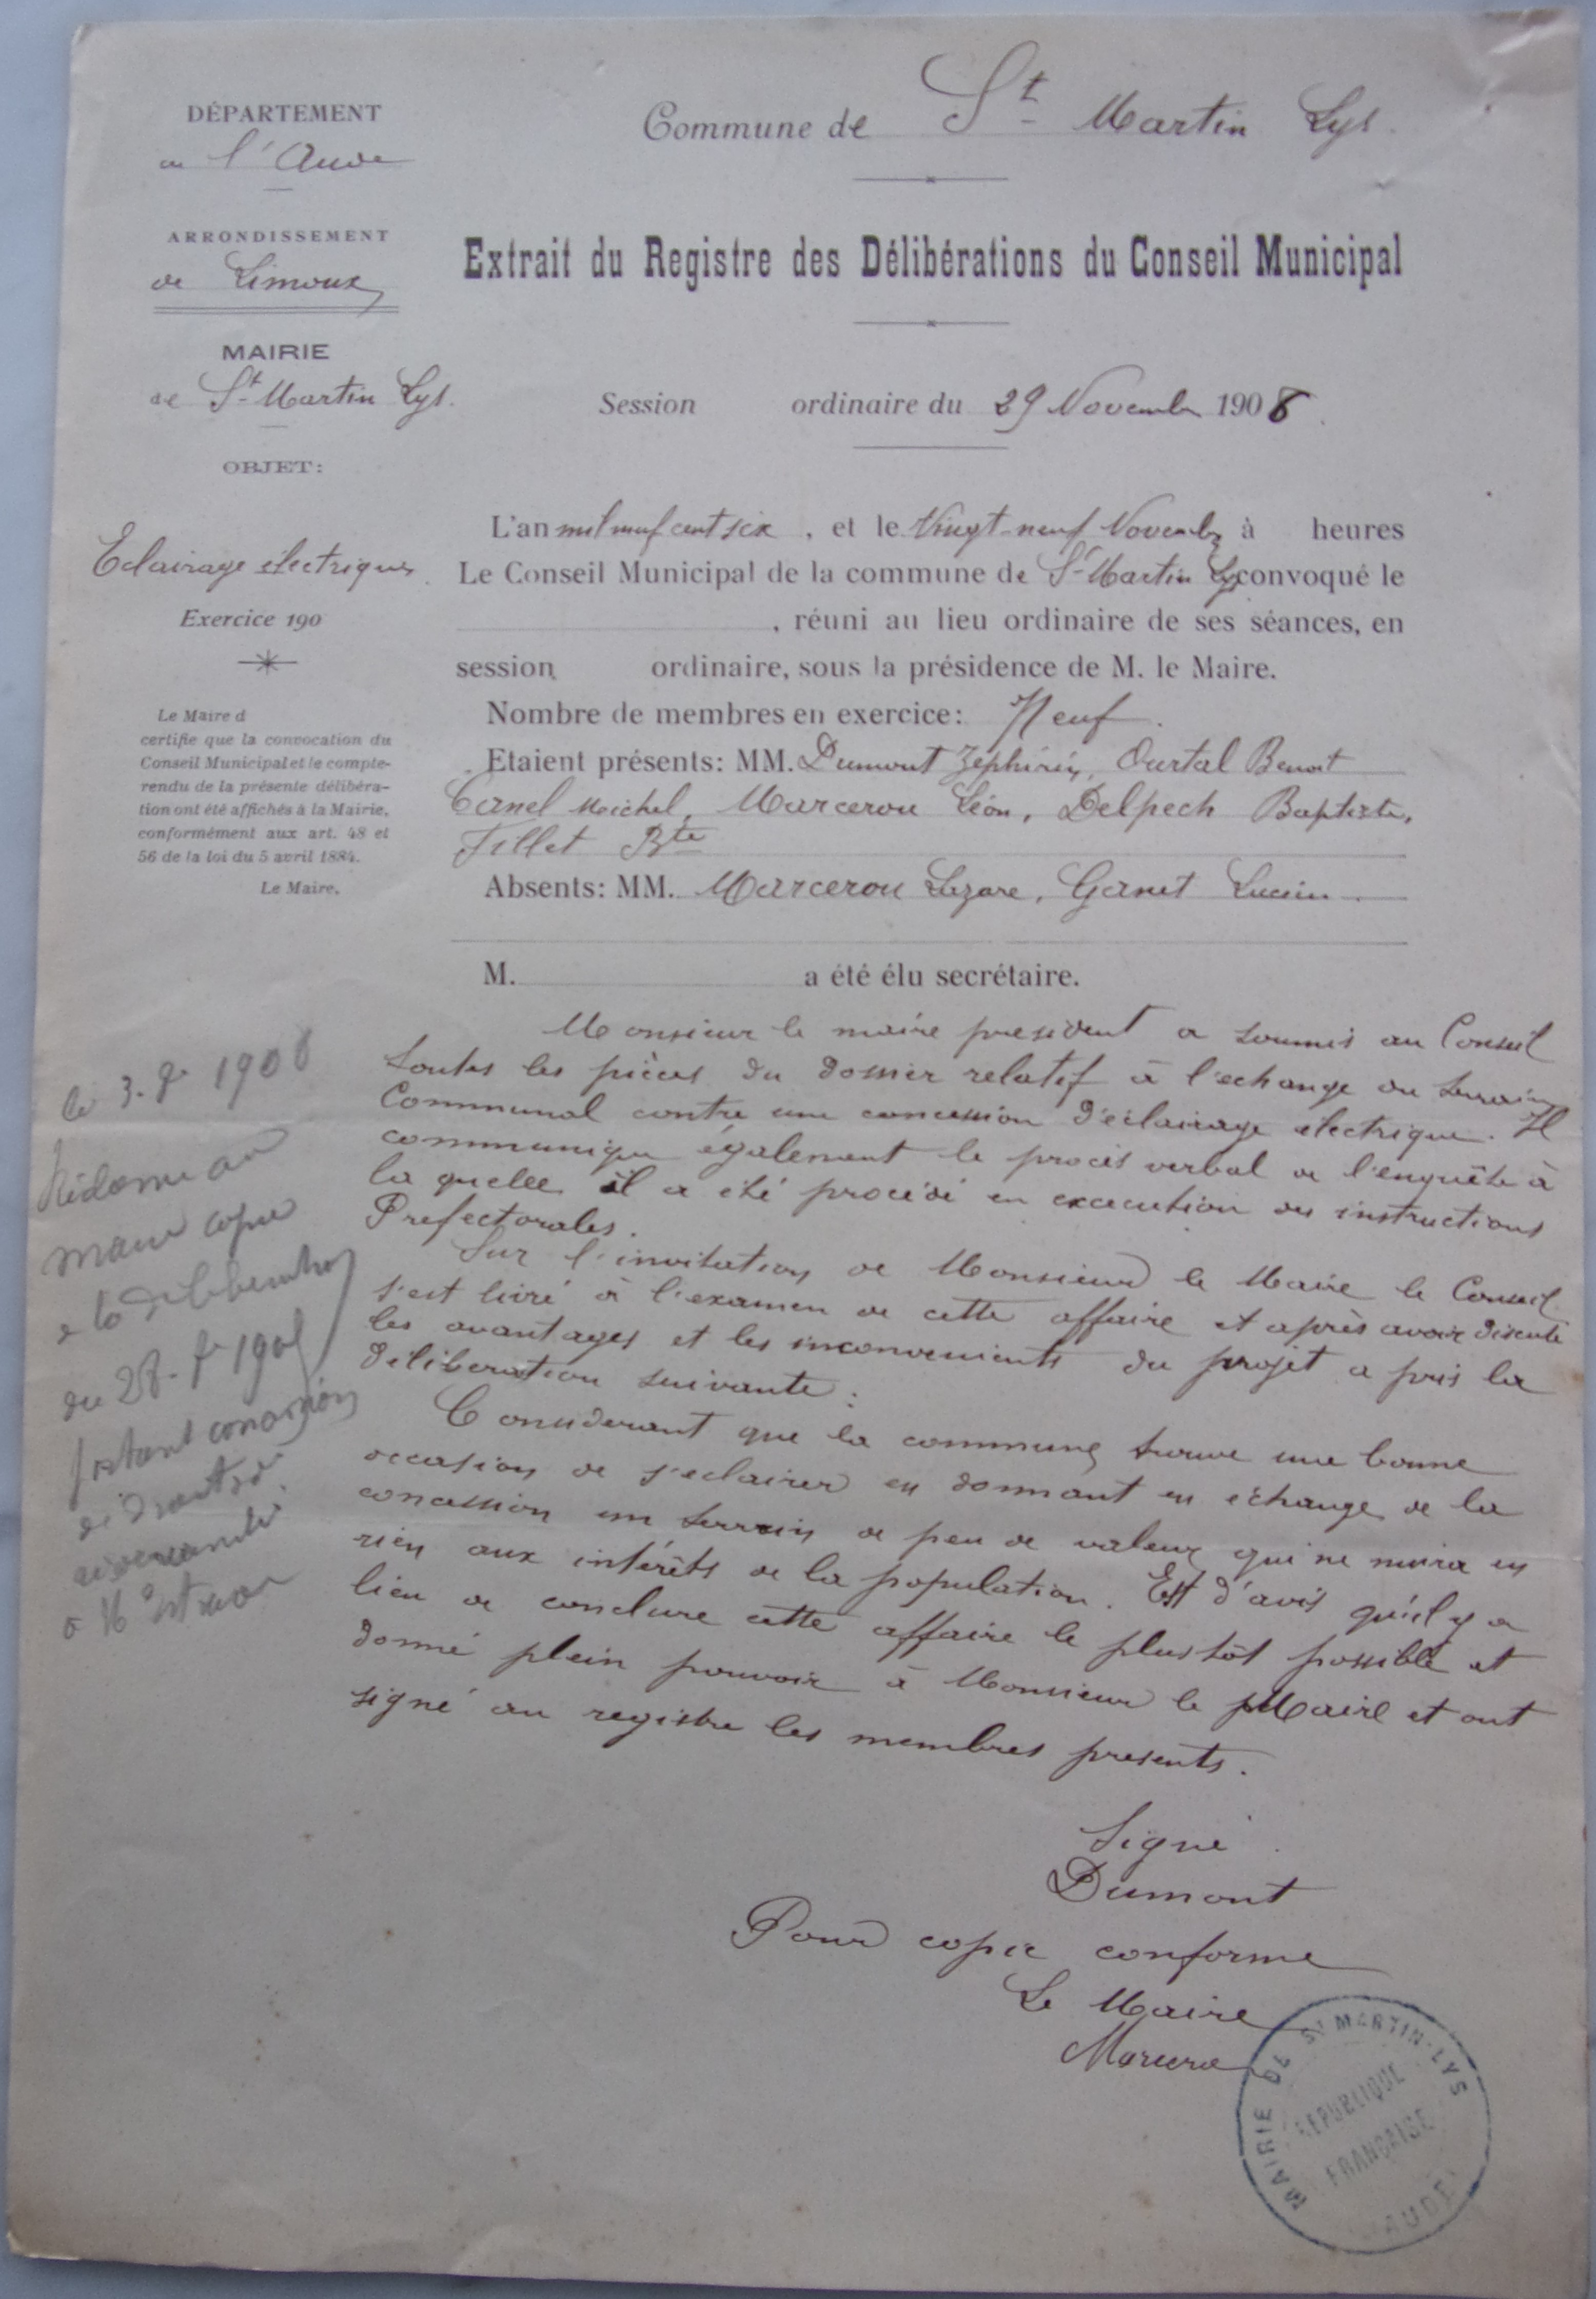 DÉPARTEMENT
de l'Aude
ARRONDISSEMENT
de Limoux
MAIRIE
de St Martin Lys.
OBJET:
Eclairage électrique.
Exercice 190
Le Maire d
certifie que la convocation du
Conseil Municipal et le compte-
rendu de la présente délibéra-
tion ont été affichés à la Mairie,
conformément aux art. 48 et
56 de la loi du 5 avril 1884.
Le Maire,
le 3. 1908
maire copie
de la délibération
du 28. 1908
portant concession
Commune de St Martin Lys.
Extrait du Registre des Délibérations du Conseil Municipal
Session ordinaire du 29 Novembre 190
L'an mil neuf cent six, et le Vingt-neuf Novembre à heures
Le Conseil Municipal de la commune de St Martin Lys convoqué le
, réuni au lieu ordinaire de ses séances, en
session ordinaire, sous la présidence de M. le Maire.
Nombre de membres en exercice: Neuf.
Etaient présents: MM. Dumont Zéphirin, Ourtal Benoit
Canel Michel, Marcerou Léon, Delpech Baptiste,
Fillet Bte
Absents: MM. Marcerou Lazare, Ganet Lucien.
M. a été élu secrétaire.
Monsieur le maire president a soumis au Conseil
toutes les pièces du dossier relatif à l'echange du terrain
Communal contre une concession d'éclairage electrique. Il
communique également le procès verbal de l'enquête à
la quelle il a été procédé en excecution des instructions
Prefectorales.
Sur l'invitation de Monsieur le Maire le Conseil
s'est livré à l'examen de cette affaire et après avoir discuté
les avantages et les inconvenients du projet a pris la
deliberation suivante :
Considerant que la commune trouve une bonne
occasion de s'eclairer en donnant en échange de la
concession un terrain de peu de valeur qui ne nuira en
rien aux intérêts de la population. Est d'avis qu'il y a
lieu de conclure cette affaire le plus tôt possible et
donné plein pouvoir à Monsieur le Maire et ont
signé au registre les membres presents.
Signé
Dumont
Pour copie conforme
Le Maire
MAIRIE DE ST MARTIN-LYS
REPUBLIQUE
FRANÇAISE
AUDE